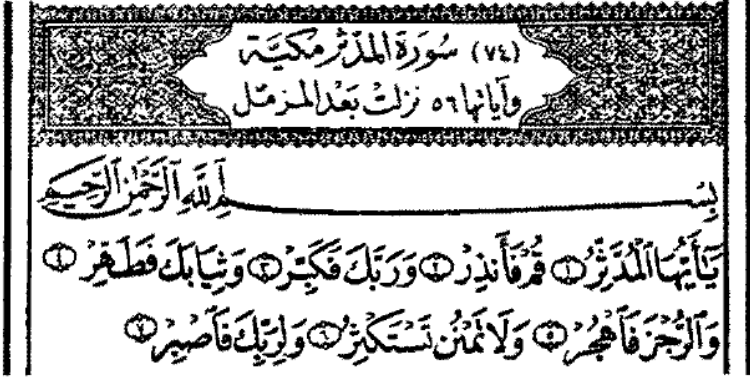 (٧٤) سورة المدثر مكية
وآياتها ٥٦ نزلت بعد المزمل
بِسْمِ ٱللَّهِ ٱلرَّحْمَٰنِ ٱلرَّحِيمِ
يَٰٓأَيُّهَا ٱلْمُدَّثِّرُ ١ قُمْ فَأَنذِرْ ٢ وَرَبَّكَ فَكَبِّرْ ٣ وَثِيَابَكَ فَطَهِّرْ ٤
وَٱلرُّجْزَ فَٱهْجُرْ ٥ وَلَا تَمْنُن تَسْتَكْثِرُ ٦ وَلِرَبِّكَ فَٱصْبِرْ ٧